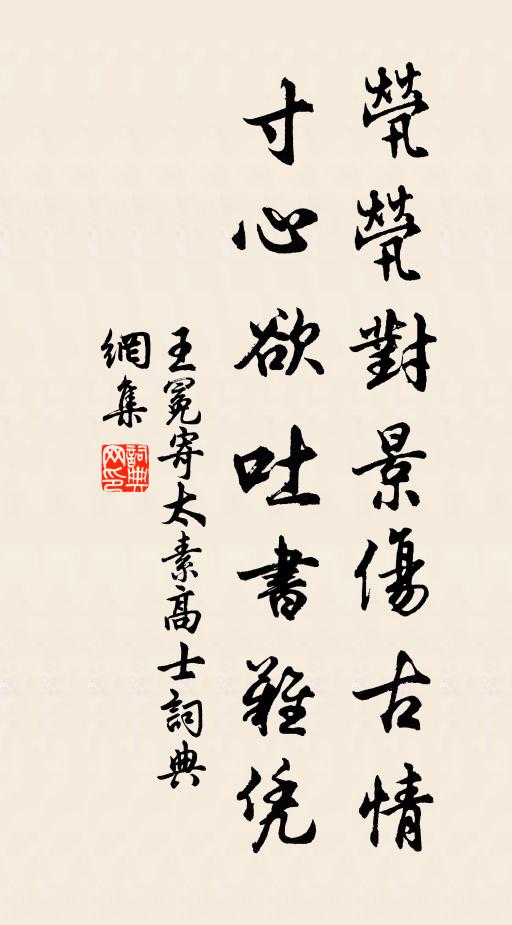 煢煢對景傷古情
寸心欲吐書難凭
王冕寄太素高士詞典
網集
詞典
网印